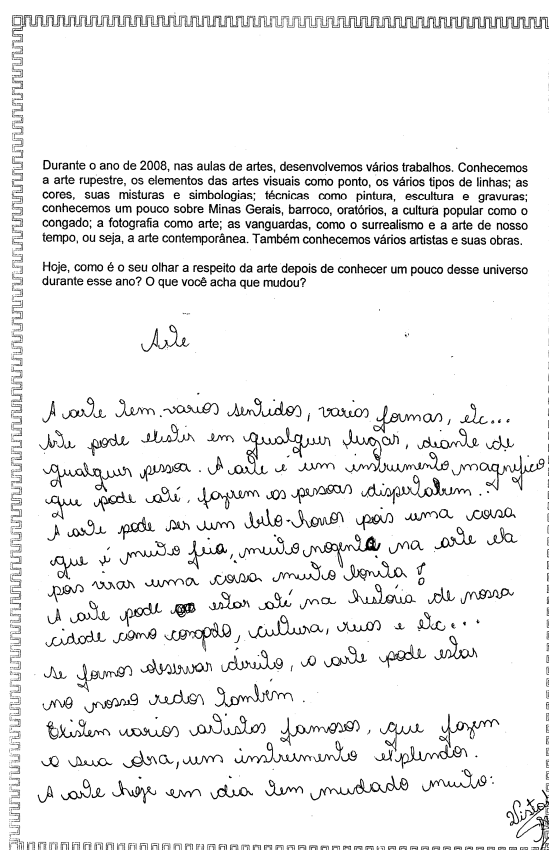 Durante o ano de 2008, nas aulas de artes, desenvolvemos vários trabalhos. Conhecemos
a arte rupestre, os elementos das artes visuais como ponto, os vários tipos de linhas; as
cores, suas misturas e simbologias; técnicas como pintura, escultura e gravuras;
conhecemos um pouco sobre Minas Gerais, barroco, oratórios, a cultura popular como o
congado; a fotografia como arte; as vanguardas, como o surrealismo e a arte de nosso
tempo, ou seja, a arte contemporânea. Também conhecemos vários artistas e suas obras.
Hoje, como é o seu olhar a respeito da arte depois de conhecer um pouco desse universo
durante esse ano? O que você acha que mudou?
Arte
A arte tem varios sentidos, varios formas, etc...
Arte pode existir em qualquer lugar, diante de
qualquer pessoa. A arte é um instrumento magnifico
que pode até, fazerem as pessoas dispertarem..
A arte pode ser um belo-horror pois uma coisa
que é muito feia, muito nogenta na arte ela
pois virar uma coisa muito bonita!
A arte pode estar até na historia de nossa
cidade como congado, cultura, ruas e etc...
Se formos observar direito, a arte pode estar
no nosso redor também.
Existem varios artistas famosos, que fazem
a sua obra, um instrumento explendor.
A arte hoje em dia tem mudado muito:
Visto